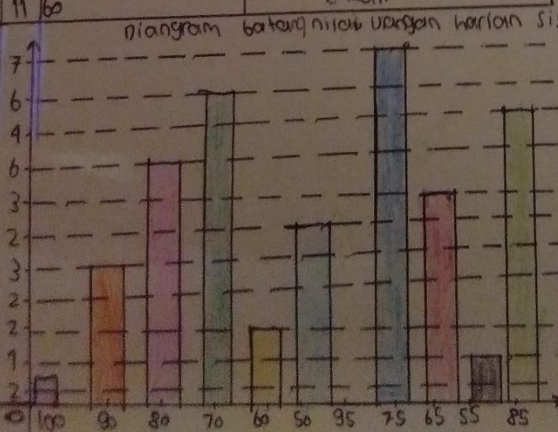 11 60
Diangram batang nilai uangan harian si
7
6
4
6
3
2
3
2
2
1
2
0 100 90 80 70 60 50 95 75 65 55 85